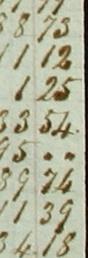 8 73
11 12
1 25
33 54
95 " "
39 74
11 39
34 18